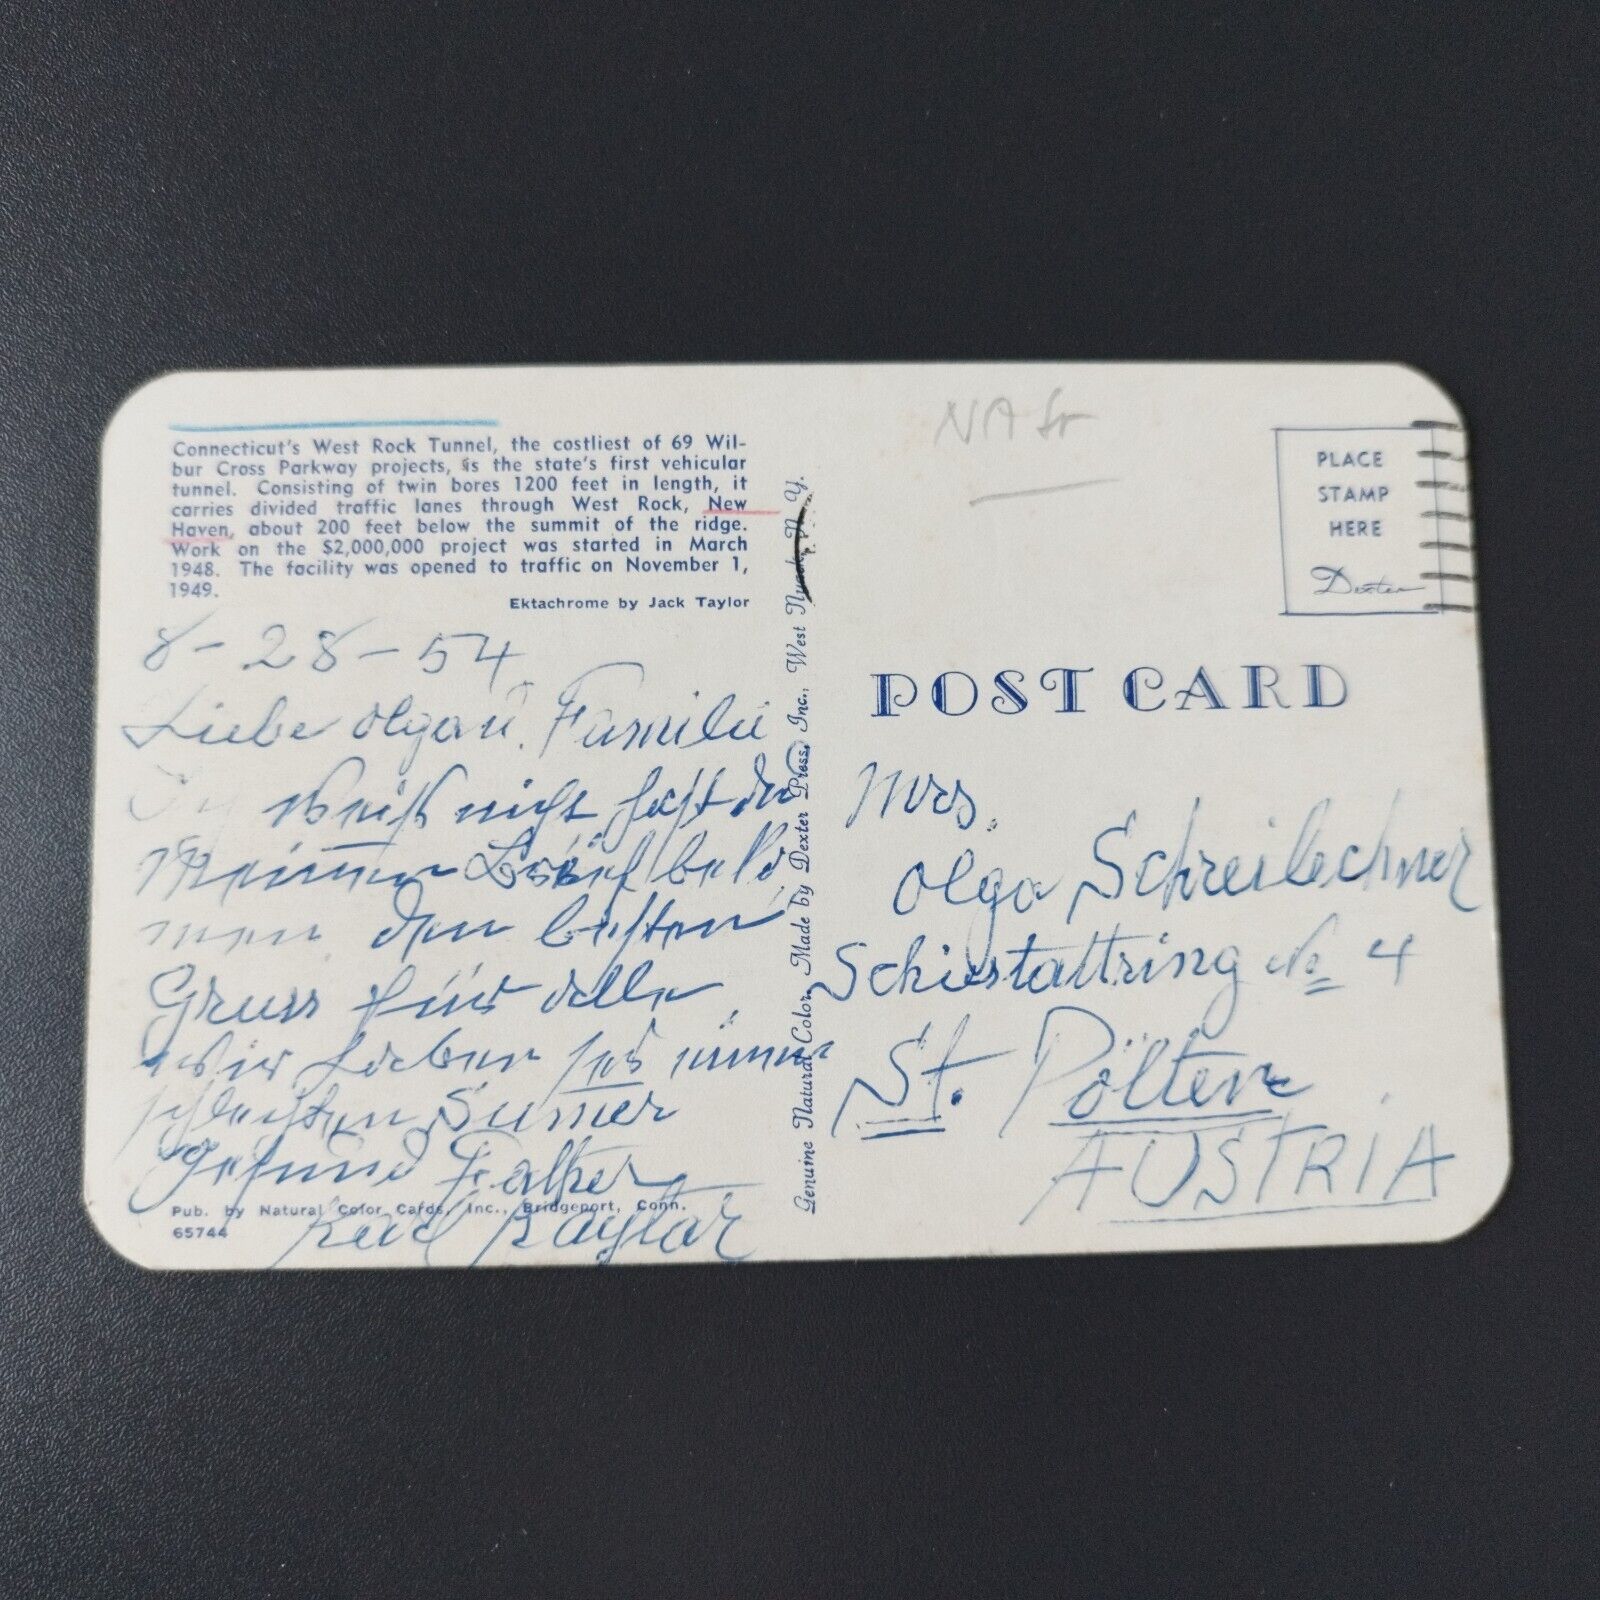 Connecticut's West Rock Tunnel, the costliest of 69 Wil-
bur Cross Parkway projects, is the state's first vehicular
tunnel. Consisting of twin bores 1200 feet in length, it
carries divided traffic lanes through West Rock, New
Haven, about 200 feet below the summit of the ridge.
Work on the $2,000,000 project was started in March
1948. The facility was opened to traffic on November 1,
1949.
Ektachrome by Jack Taylor
8-28-54
Liebe Olga u. Familie
Weiß nicht hast du
Meinen Brief
den besten
Gruss für alle
wir haben
schlechten Sumer
gesund
Karl
Pub. by Natural Color Cards, Inc., Bridgeport, Conn.
65744
Genuine Natural Color, Made by Dexter Press, Inc., West Nyack, N. Y.
PLACE
STAMP
HERE
Dexter
POST CARD
Mrs.
Olga Schreilechner
Schiestattring No 4
St. Pölten
AUSTRIA